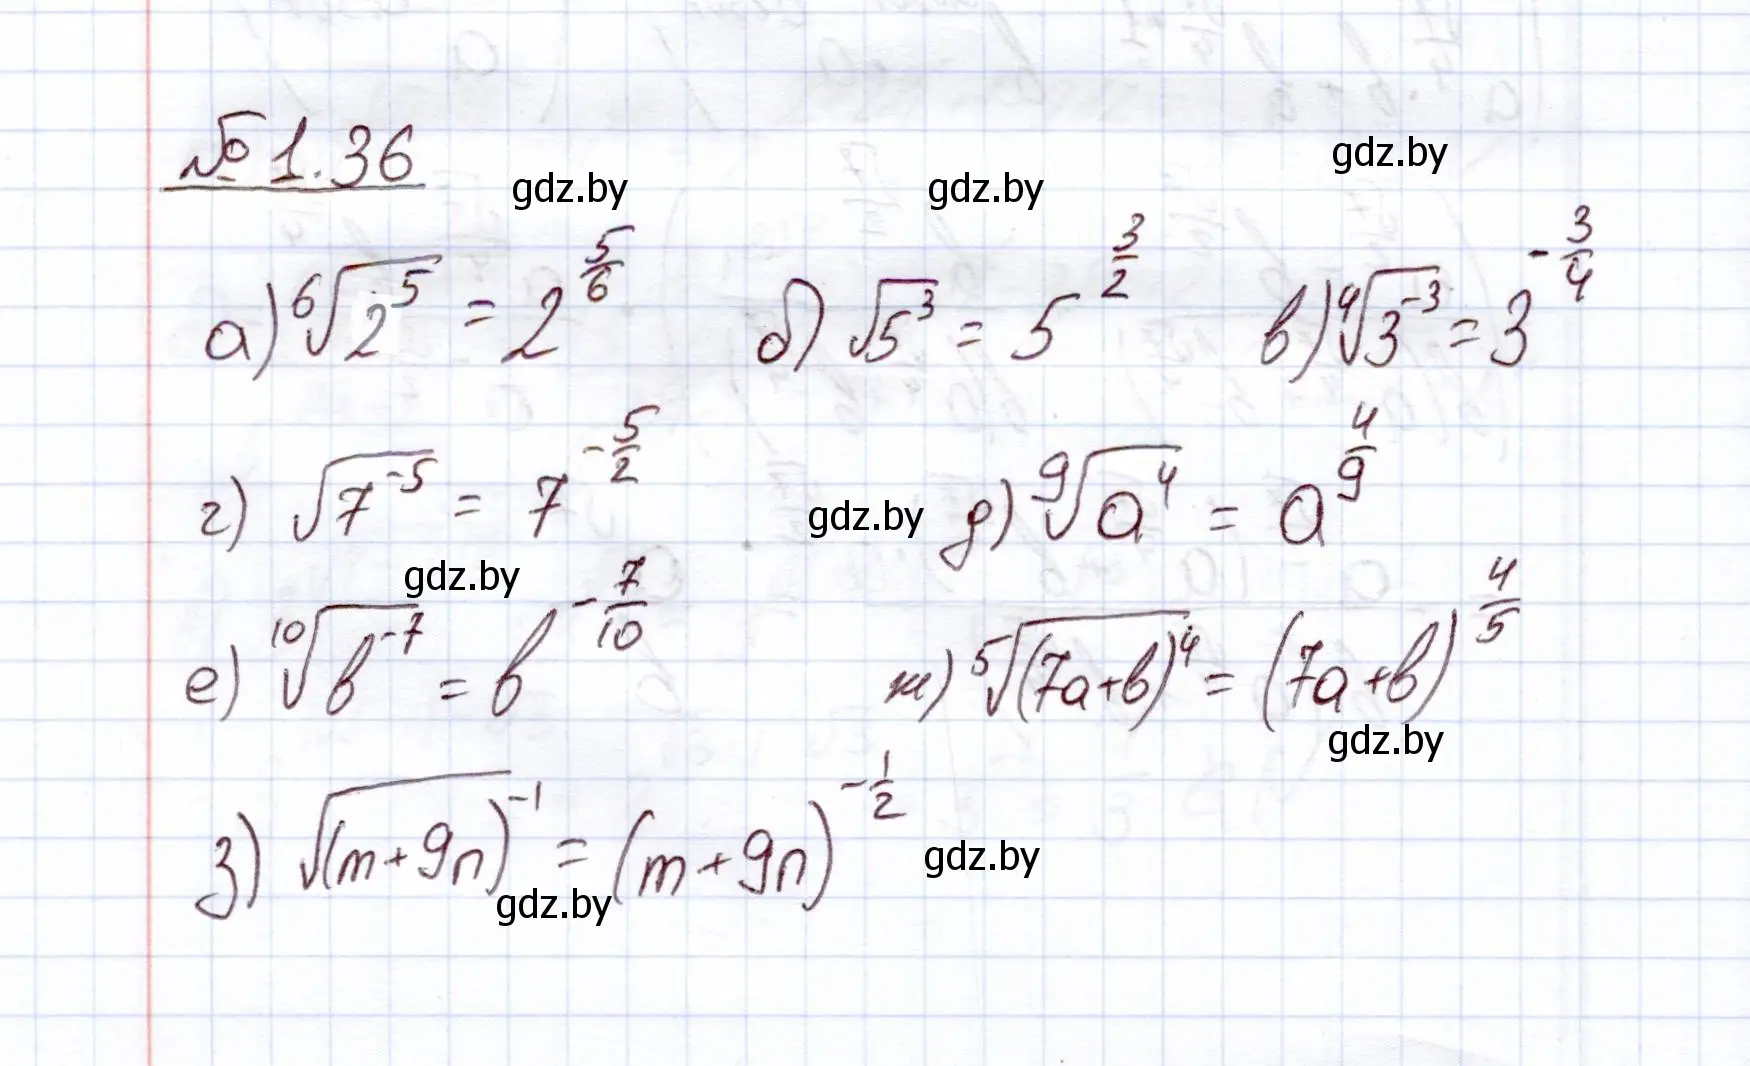 № 1.36
gdz.by gdz.by gdz.by
а) ⁶√2⁵ = 2^(5/6) б) √5³ = 5^(3/2) в) ⁴√3⁻³ = 3^(-3/4)
г) √7⁻⁵ = 7^(-5/2) gdz.by д) ⁹√a⁴ = a^(4/9)
gdz.by
е) ¹⁰√b⁻⁷ = b^(-7/10) ж) ⁵√(7a+b)⁴ = (7a+b)^(4/5)
gdz.by
з) √(m+9n)⁻¹ = (m+9n)^(-1/2) gdz.by
gdz.by